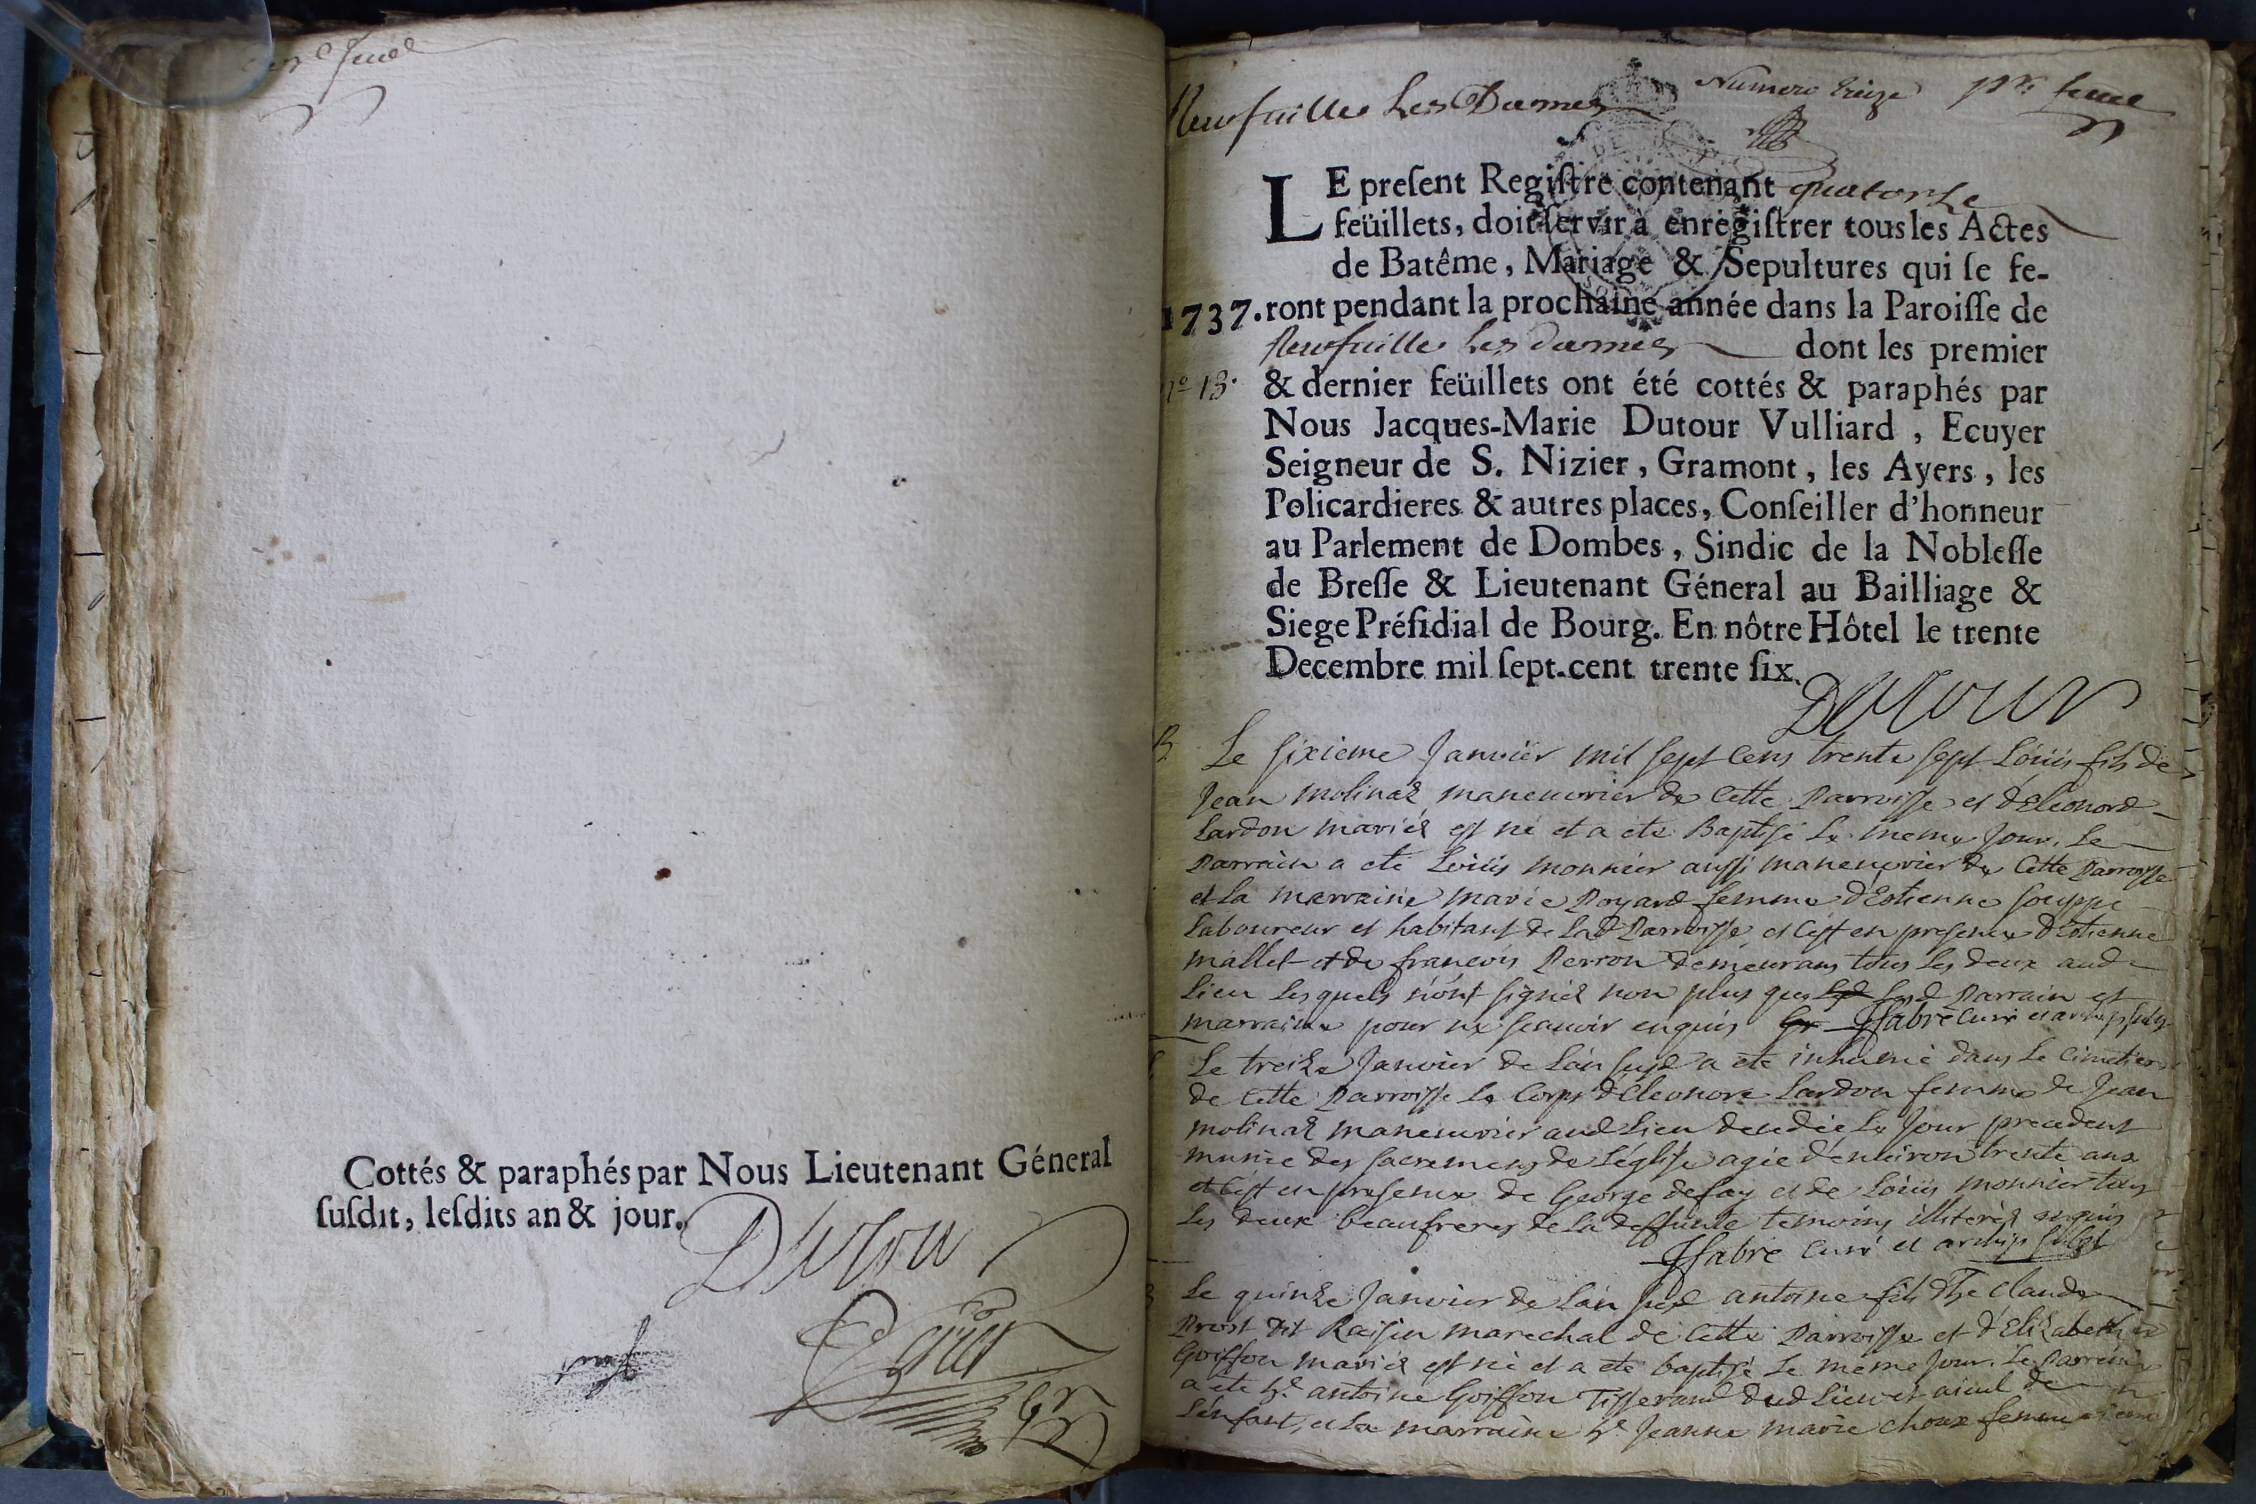 Cottés & paraphés par Nous Lieutenant Géneral
ſuſdit, leſdits an & jour.
Neufuille Les Dames
Numero treize
LE preſent Regiſtre contenant quatorze
feüillets, doit ſervir à enregiſtrer tous les Actes
de Batême, Mariage & Sepultures qui ſe fe-
1737. ront pendant la prochaine année dans la Paroiſſe de
Neufuille Les dames dont les premier
no 13. & dernier feüillets ont été cottés & paraphés par
Nous Jacques-Marie Dutour Vulliard, Ecuyer
Seigneur de S. Nizier, Gramont, les Ayers, les
Policardieres & autres places, Conſeiller d'honneur
au Parlement de Dombes, Sindic de la Nobleſſe
de Breſſe & Lieutenant Géneral au Bailliage &
Siege Préſidial de Bourg. En nôtre Hôtel le trente
Decembre mil ſept.cent trente ſix.
Dutour
B Le sixieme Janvier mil sept cens trente sept Loüis fils de
Jean molinaz maneuvrier de cette Parroisse et d'Eleonord
Lardon mariéz est né et a eté Baptisé Le meme Jour. Le
Parrain a eté Loüis monnier aussi maneuvrier de cette Parroisse
et La marraine marie Poyard femme d'Estienne
Laboureur et habitant de Lad Parroisse, et c'est en presence d'Estienne
mallet et de francois Perron demeurans tous les deux aud
Lieu Lesquels n'ont signéz non plus que Led Parrain et
marraine pour ne scauoir enquis JFabre Curé
Le treize Janvier de L'an susd a eté inhumé dans Le Cimetiere
de cette Parroisse Le Corps d'Eleonore Lardon femme de Jean
molinaz maneuvrier aud Lieu decedée Le Jour precedent
munie des sacremens de L'église agée d'enuiron trente ans
et c'est en presence de George defay et de Loüis monnier tous
Les deux beaufreres de La deffunte temoins illiteréz enquis
JFabre Curé et
Le quinze Janvier de L'an susd antoine fils d'he Claude
Prost dit Raisin marechal de cette Parroisse et d'Elizabeth
Goiffon mariéz est né et a eté baptisé Le meme Jour. Le Parrain
a eté h. antoine Goiffon Tisserand dud Lieu et aieul de
L'enfant, et La marraine h. Jeanne marie choux femme